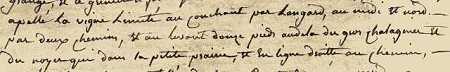 apelle La vigne Limité au couchant par Langard, au midi et nord
par deux chemins, et au levant douze pieds audela du gros chatagner et
du noyer que dans la petite prairie, et En ligne droitte au chemin, —